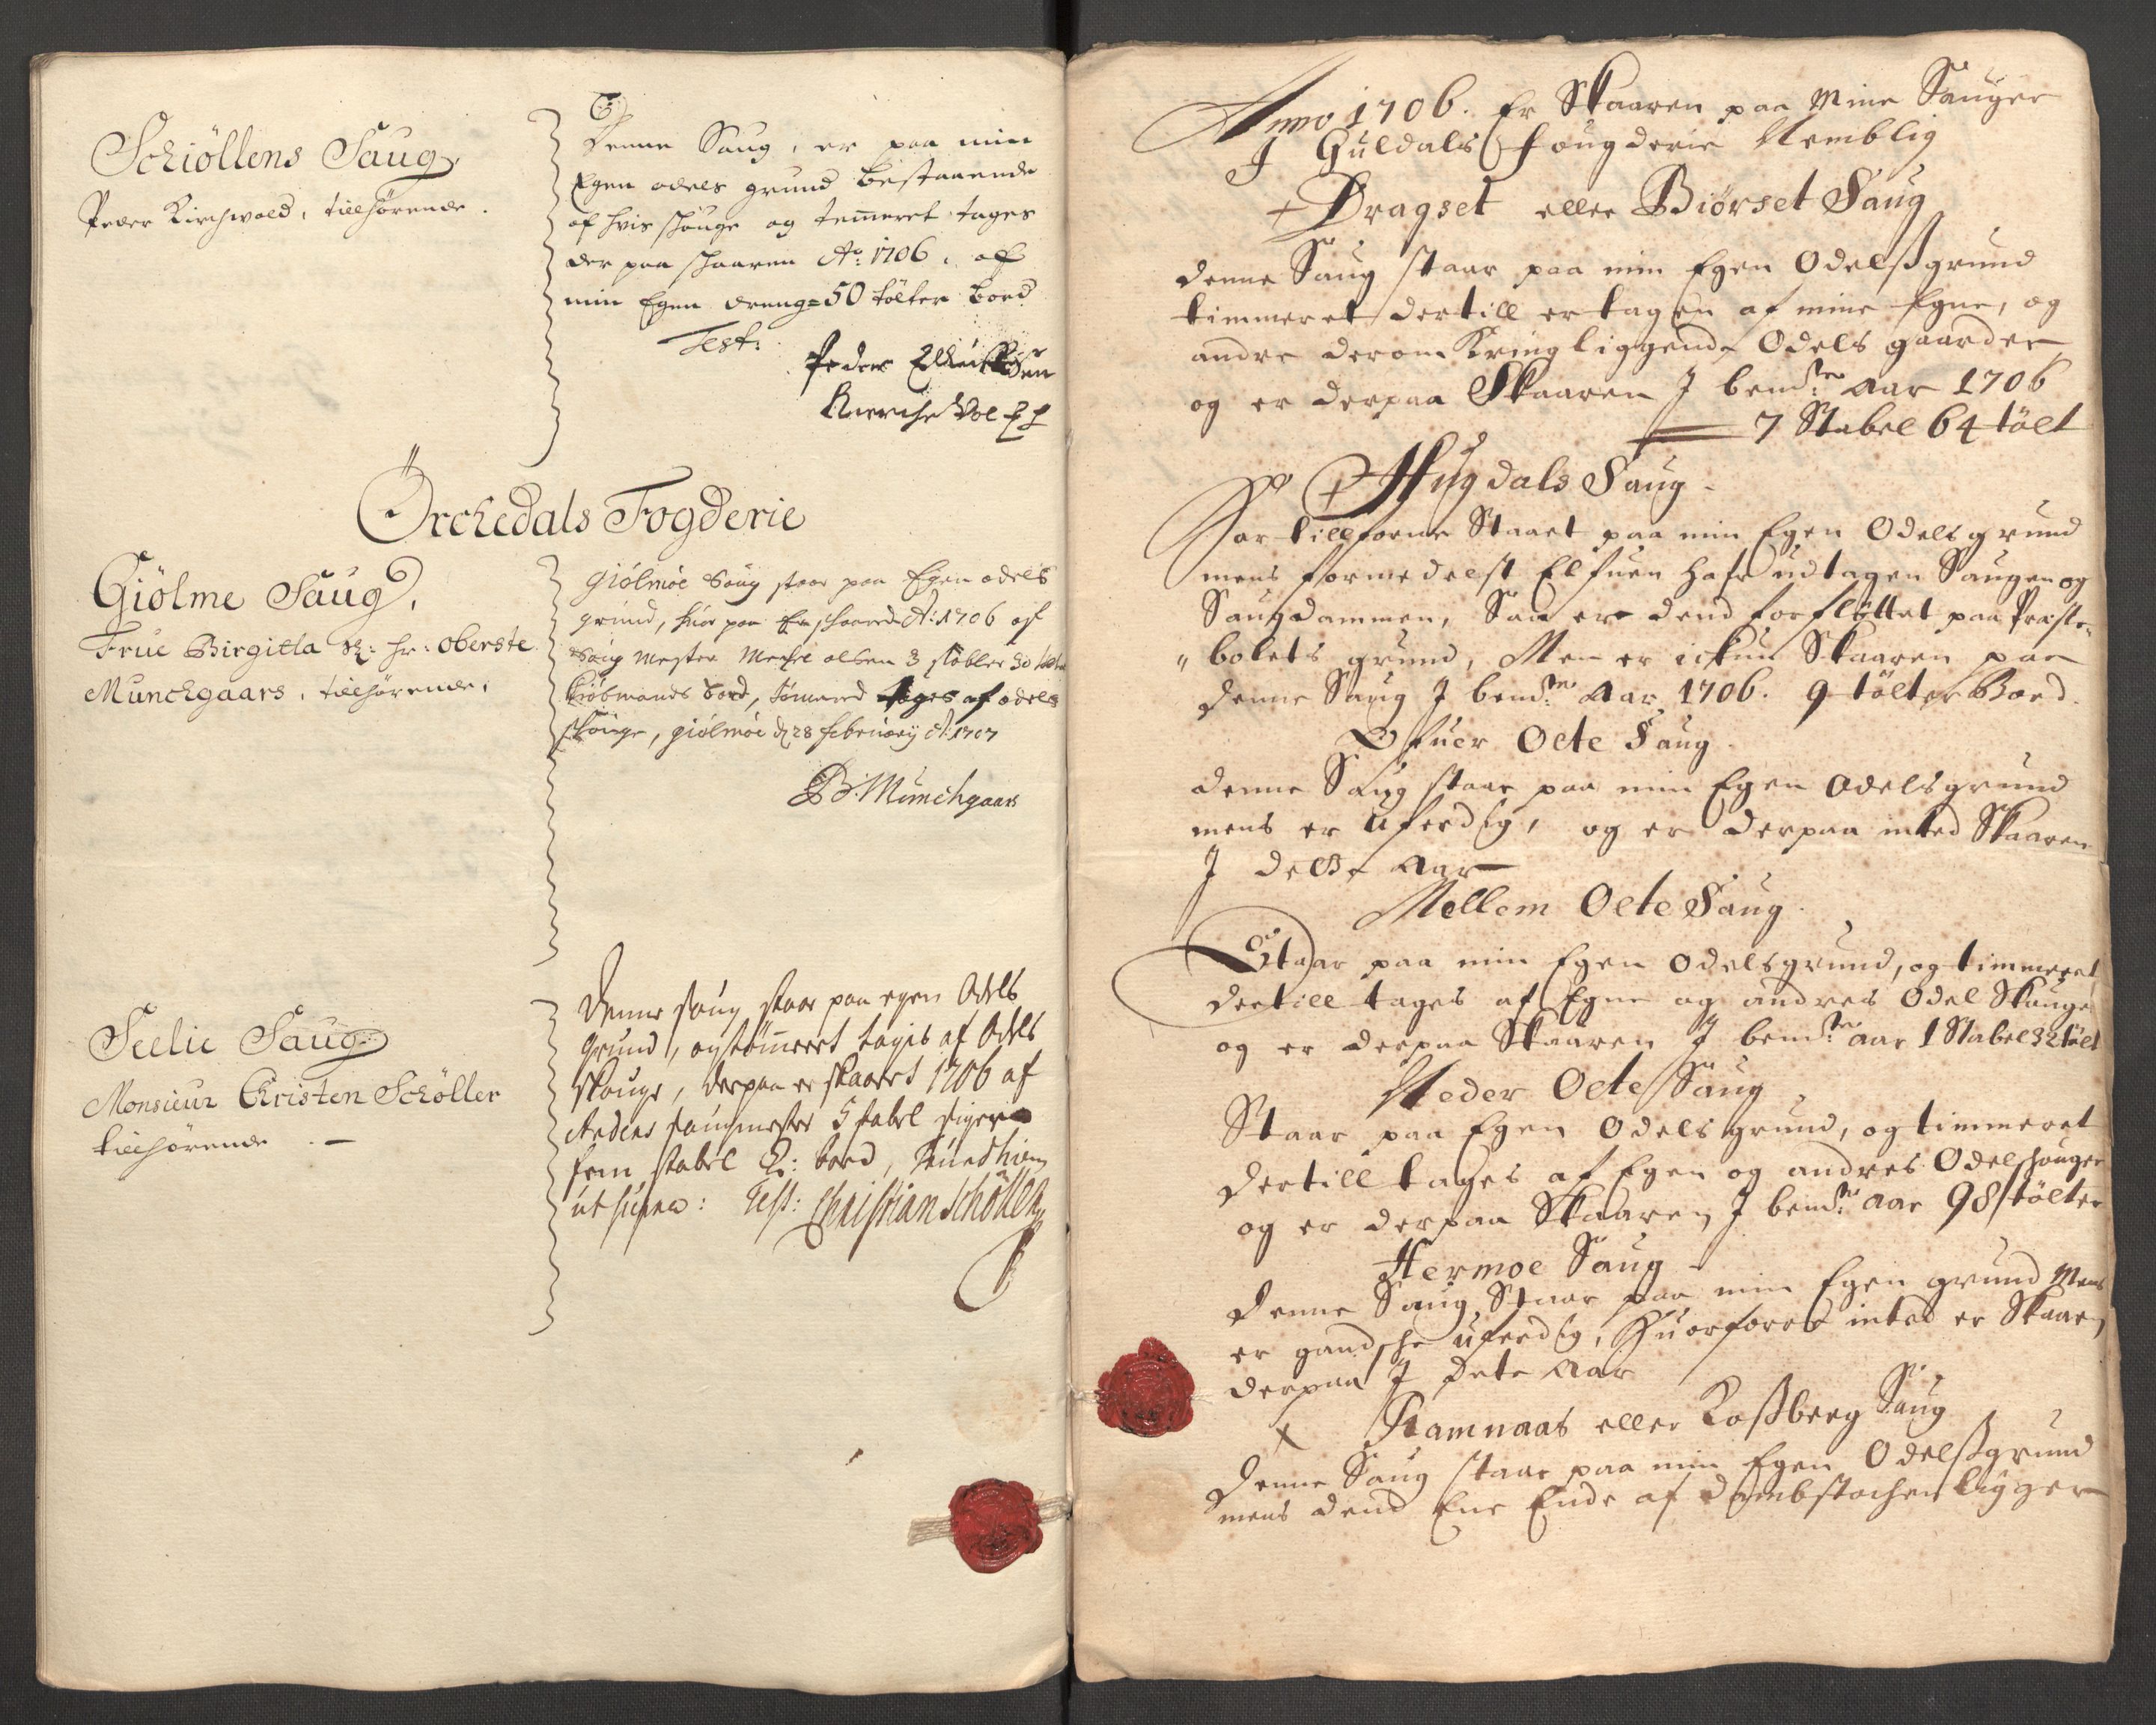 Schiöllens Saug,
Peder Kirchwold, tilhörende.
Denne Saug, er paa min
Egen odels grund bestaaende
af hvis skouge og temeret tages
der paa schaaren Ao: 1706. af
min Egen dreng = 50 tölter bord
Test:
Peder
Orchedals Fogderie
Giölme Saug,
Frue Birgitta Sl: Hr: Oberste
Munchgaars, tilhörende,
Giólmóe Saug staar paa Egen odels
grund, huor paa Er schaaren Ao: 1706 af
Saug Mester olsen 3 stabler 30 tolter
Kiöbmands bord, Tömered tages af odels
skouge, giólmóe d 28 february Ao 1707
B. Münchgaars
Seelie Saug
Monsieur Christen Schöller
tilhörende. –
Denne saug staar paa egen Odels
Grund, og tömeret tagis af Odels
skouge, derpaa er skaaret 1706 af
Anders saugmester 5 stabel siger
fem stabel bord, Trundhiem
ut supra: Test: Christian Schöller
Anno 1706. Er Skaaren paa Mine Sauger
I Guldals fougderie Nemblig
+ Dragset eller Biörset Saug
Denne Saug staar paa min Egen Odelsgrund
timmeret dertill er tagen af mine Egne, og
andre derom Kringliggende Odels gaarder
og er derpaa Skaaren I bemte: Aar 1706
7 Stabel 64 tölt
+ Hugdals Saug –
Har tillforne Staaet paa min Egen Odelsgrund
mens formedelst Elfuen hafr udtagen Saugen og
Saugdammen, Saa er dend forflöttet paa Præste„
„bolets grund, Men er ickun Skaaren paa
denne Saug I bemte: Aar 1706. 9 tölter Bord.
Ofuer Oete Saug.
Denne Saug staar paa min Egen Odelsgrund
mens er uferdig, og er derpaa inted Skaaren
I dette Aar
Mellem Oete Saug.
Staar paa min Egen Odelsgrund, og timmeret
dertill tages af Egne og andres Odel Skouge
og er derpaa Skaaren I bemte: aar 1 Stabel 32 tölt
Neder Oete Saug
Staar paa Egen Odelsgrund, og timmeret
dertill tages af Egen og andres Odelskouger
og er derpaa Skaaren I bemte: aar 98 tölter
Hermoe Saug –
Denne Saug Staar paa min Egen grund Mens
er gandsche uferdig, Huorforre inted er Skaaren
derpaa I Dete Aar
+ Ramnaas eller Rossberg Saug
Denne Saug staar paa min Egen Odelsgrund
mens dend Ene Ende af Dambstochen ligger